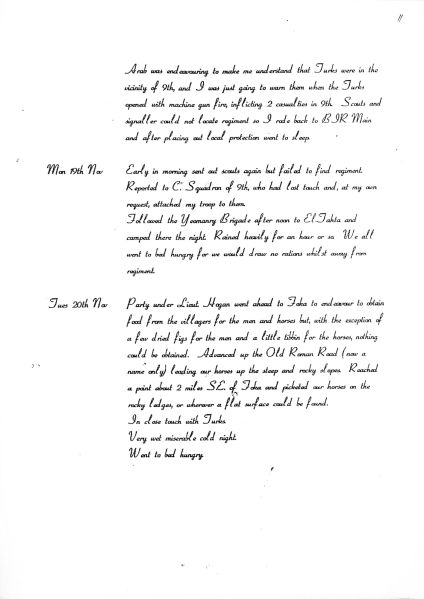 11
Arab was endeavouring to make me understand that Turks were in the
vicinity of 9th, and I was just going to warn them when the Turks
opened with machine gun fire, inflicting 2 casualties in 9th. Scouts and
signaller could not locate regiment so I rode back to BIR Main
and after placing out local protection went to sleep.
Mon 19th Nov Early in morning sent out scouts again but failed to find regiment.
Reported to C. Squadron of 9th, who had lost touch and, at my own
request, attached my troop to them.
Followed the Yeomanry Brigade after noon to El Tahta and
camped there the night. Rained heavily for an hour or so. We all
went to bed hungry for we would draw no rations whilst away from
regiment.
Tues 20th Nov Party under Lieut. Hogan went ahead to Foka to endeavour to obtain
food from the villagers for the men and horses but, with the exception of
a few dried figs for the men and a little tibbin for the horses, nothing
could be obtained. Advanced up the Old Roman Road (now a
name only) leading our horses up the steep and rocky slopes. Reached
a point about 2 miles S.E. of Foka and picketed our horses on the
rocky ledges, or wherever a flat surface could be found.
In close touch with Turks.
Very wet miserable cold night.
Went to bed hungry.